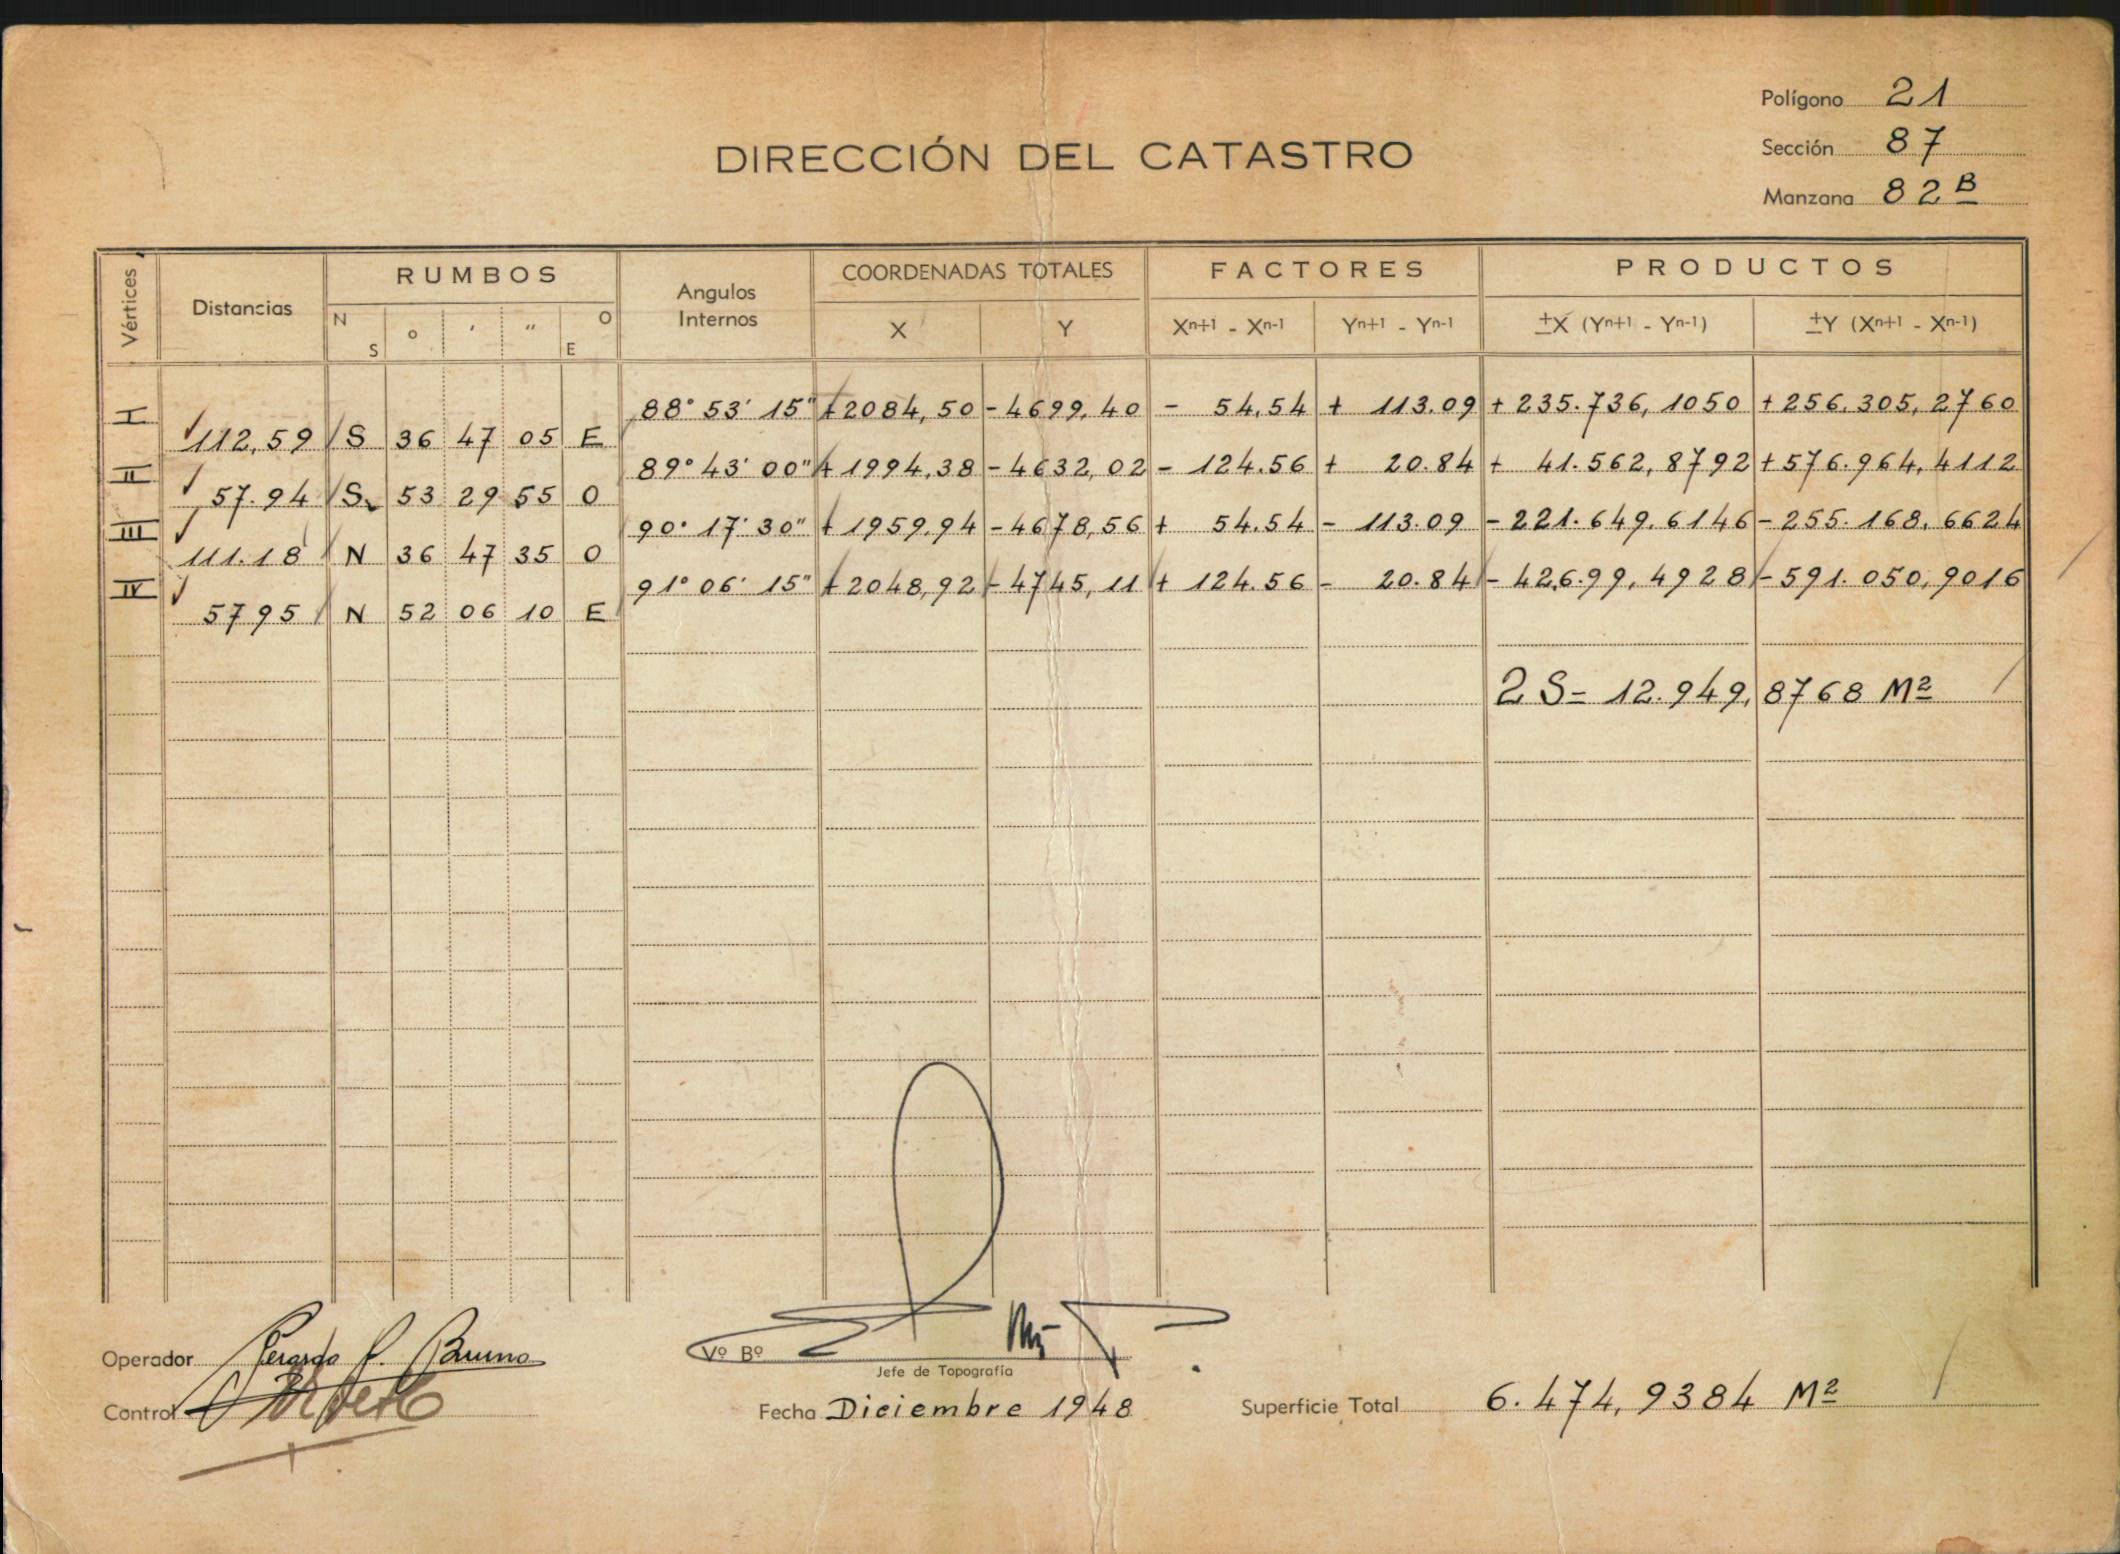 Polígono 21
Sección 87
Manzana 82 B
DIRECCIÓN DEL CATASTRO
Vértices Distancias RUMBOS Angulos Internos COORDENADAS TOTALES FACTORES PRODUCTOS
N S ° ' " O E X Y Xn+1 - Xn-1 Yn+1 - Yn-1 ±X (Yn+1 - Yn-1) ±Y (Xn+1 - Xn-1)
I 88° 53' 15" +2084,50 -4699,40 - 54,54 + 113.09 + 235.736,1050 + 256.305,2760
112,59 S 36 47 05 E
II 89° 43' 00" + 1994,38 -4632,02 - 124.56 + 20.84 + 41.562,8792 + 576.964,4112
57.94 S 53 29 55 O
III 90° 17' 30" + 1959.94 -4678,56 + 54.54 - 113.09 - 221.649.6146 - 255.168,6624
111.18 N 36 47 35 O
IV 91° 06' 15" + 2048,92 - 4745,11 + 124.56 - 20.84 - 426.99,4928 - 591.050,9016
5795 N 52 06 10 E
2 S = 12.949,8768 M2
Operador Gerardo P. Bruno
Vº Bº
Jefe de Topografía
Control
Fecha Diciembre 1948
Superficie Total 6.474,9384 M2